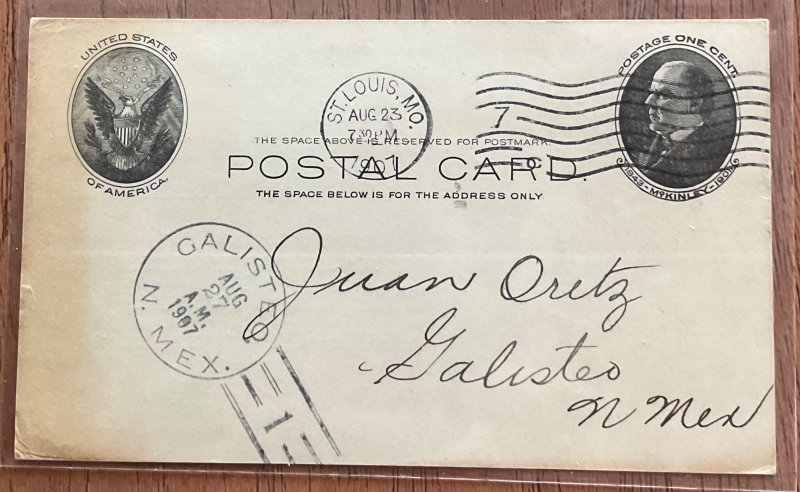 UNITED STATES
OF AMERICA.
POSTAGE ONE CENT.
1843-McKINLEY-1901
ST. LOUIS, MO.
AUG 23
7 30 PM
1907
7
THE SPACE ABOVE IS RESERVED FOR POSTMARK.
POSTAL CARD.
THE SPACE BELOW IS FOR THE ADDRESS ONLY
GALISTEO
AUG
27
A.M.
1907
N. MEX.
1
Juan Oretz
Galisteo
N Mex